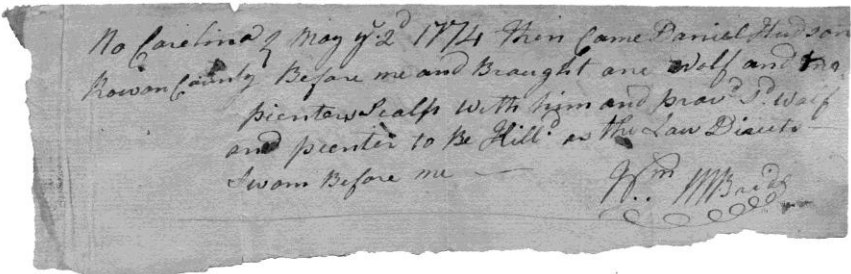 No Carolina } May ye. 2d 1774 then Came Daniel Hudson
Rowan County Before me and Braught one Wolf and
pienters Scalps with him and provd. Sd. Wolf
and pienter to Be Killd. as the Law Directs
Sworn Before me
Wm McBride